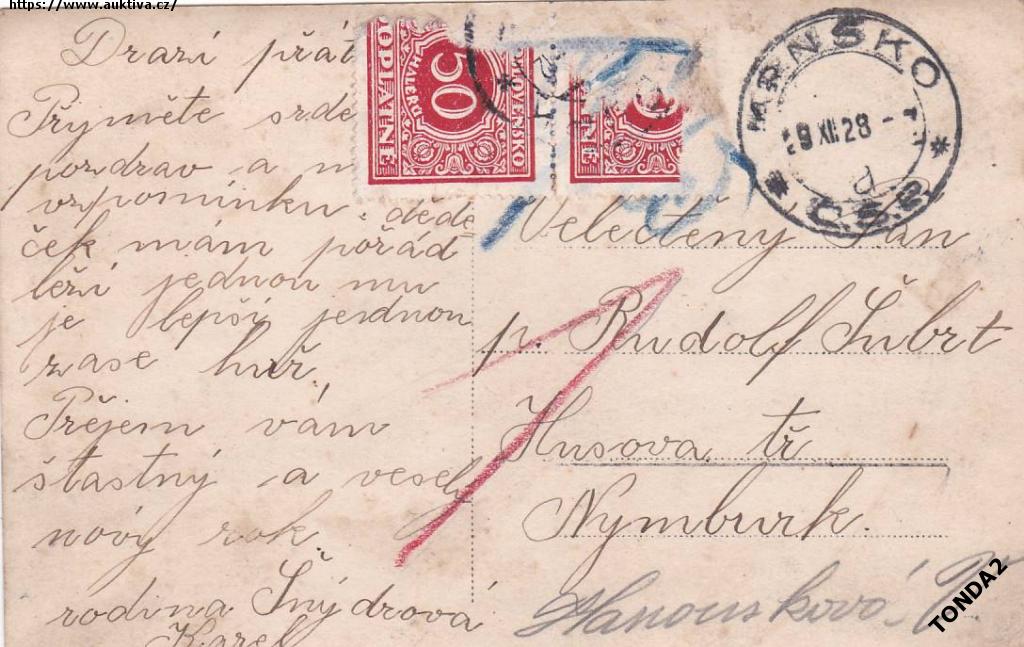 https://www.auktiva.cz/
Drazí přát
Přijměte srde
pozdrav a n
vzpomínku. děde
ček mám pořád
leží jednou mu
je lepší jednou
zase huř.
Přejem vám
šťastný a veselý
nový rok
rodina Šnýdrová
Karel
50
HALERŮ
DOPLATNÉ
SLOVENSKO
NSKO
9 XII. 28
Č.S.R.
Velectěný Pán
p. Rudolf Šubrt
Husova tř.
Nymburk.
Hanousková
TONDA2